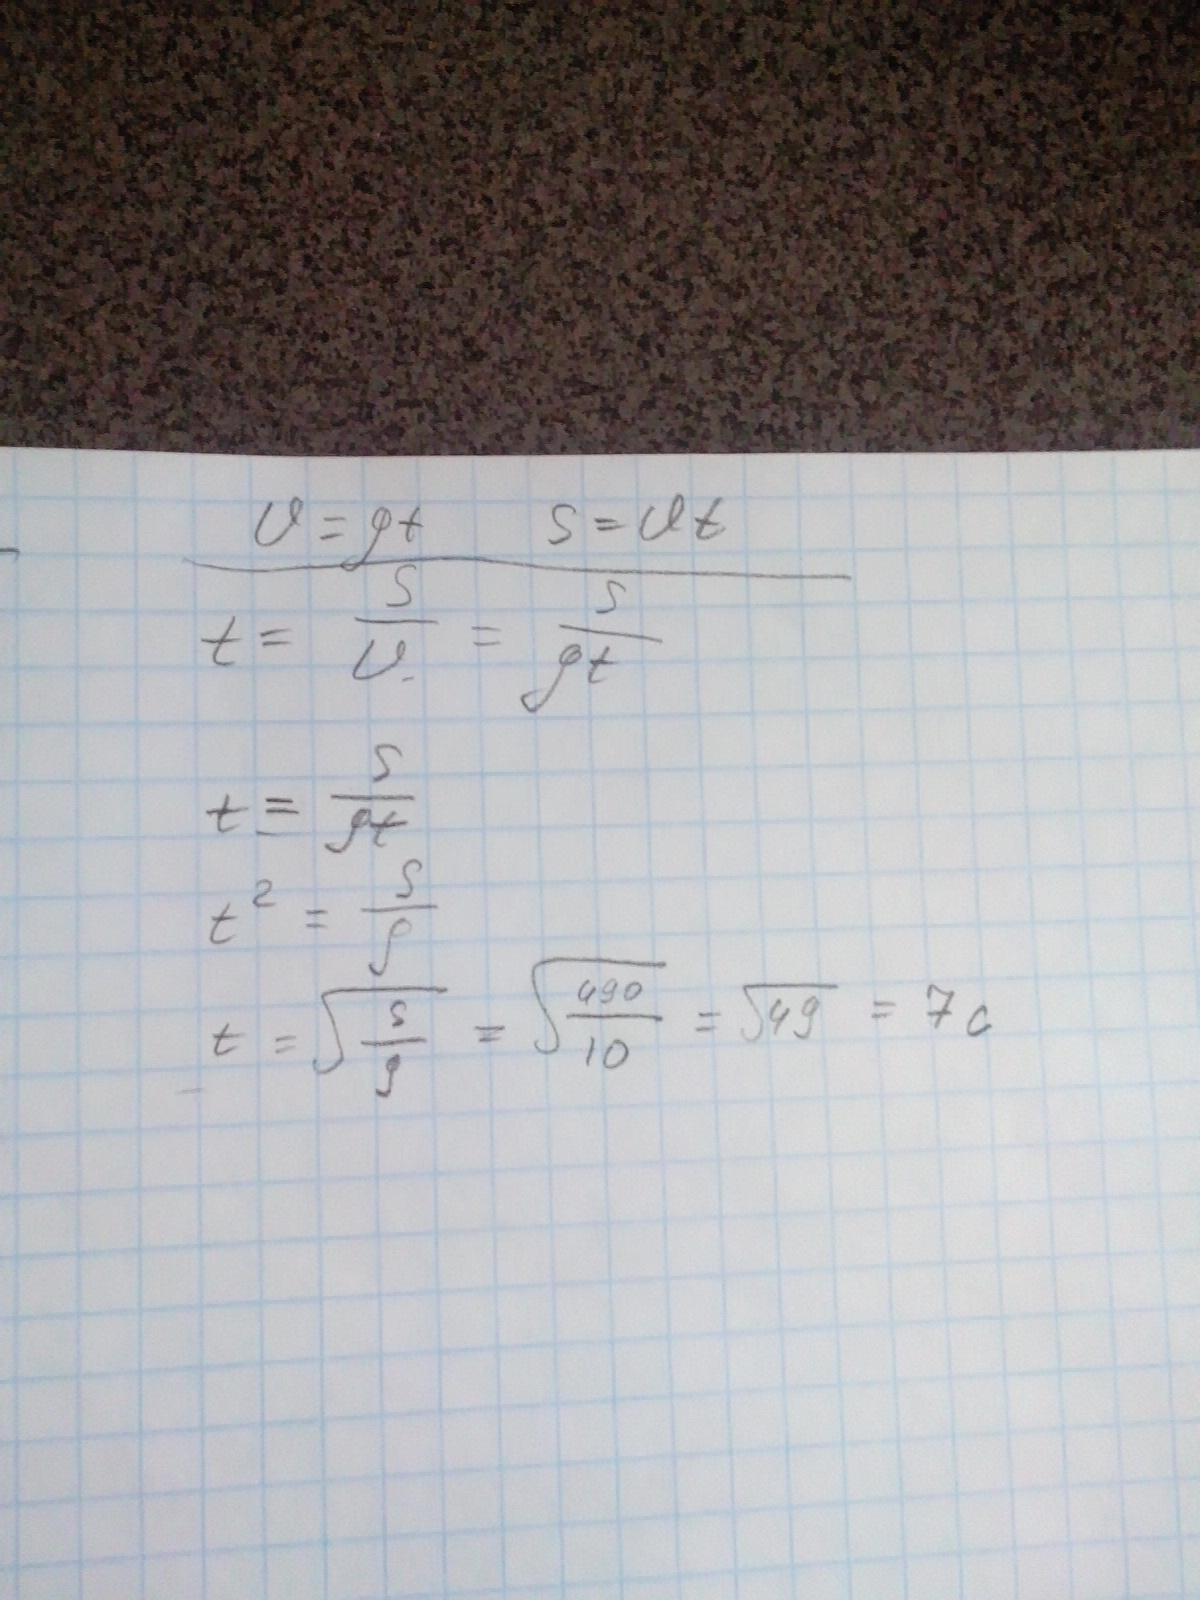 υ = gt   S = υt
t = S/υ = S/gt
t = S/gt
t² = S/g
t = √(S/g) = √(490/10) = √49 = 7 с